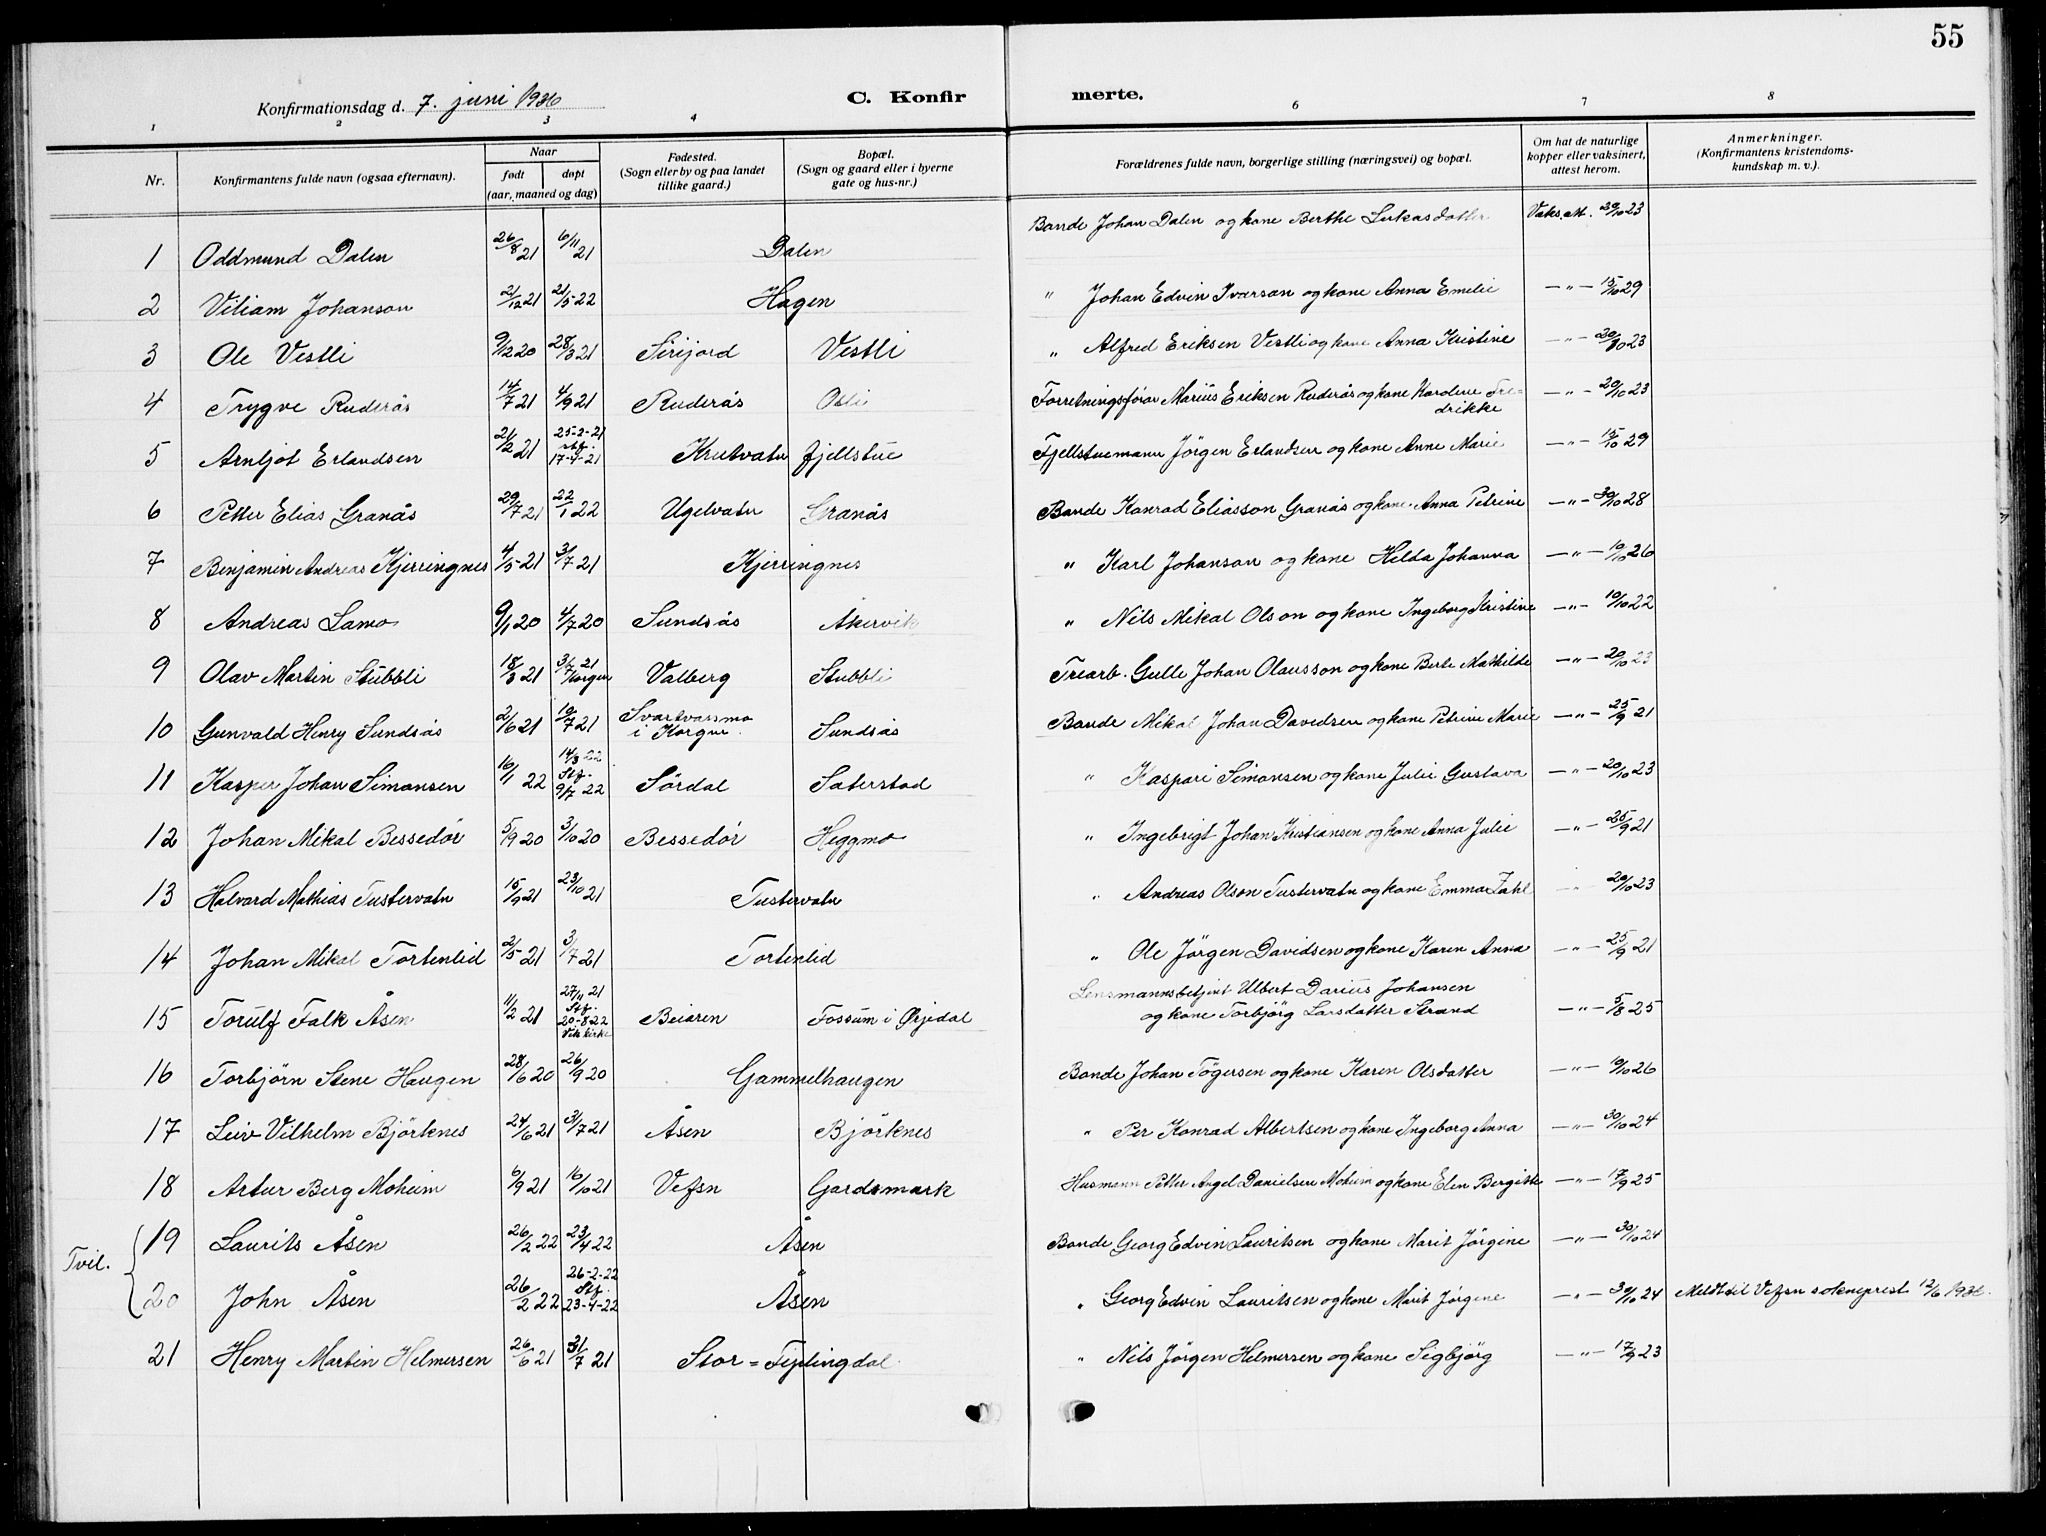 55
Konfirmationsdag d. 7. juni 1936 C. Konfir merte.
1 2 3 4 6 7 8
Nr. Konfirmantens fulde navn (ogsaa efternavn). Naar født døpt (aar, maaned og dag) Fødested. (Sogn eller by og paa landet tillike gaard.) Bopæl. (Sogn og gaard eller i byerne gate og hus-nr.) Forældrenes fulde navn, borgerlige stilling (næringsvei) og bopæl. Om hat de naturlige kopper eller vaksinert, attest herom. Anmerkninger. (Konfirmantens kristendoms-kundskap m. v.).
1 Oddmund Dalen 26/8 21 6/11 21 Dalen Bonde Johan Dalen og kone Berthe Lukasdatter Vaks.att. 20/10 23
2 Viliam Johanson 21/12 21 21/5-22 Hagen " Johan Edvin Ivarson og kone Anna Emelie —"— 15/10 29
3 Ole Vestli 9/12 20 28/3 21 Sirijord Vestli " Alfred Eriksen Vestli og kone Anna Kristine —"— 20/10 23
4 Trygve Ruderås 14/7 21 4/9 21 Ruderås Osli Forretningsförar Marius Eriksen Ruderås og kone Karoline Fre=
drikke —"— 20/10 23
5 Arnljot Erlandsen 21/2 21 25-3-21 stf. 17-4-21 Krutvatn fjellstue Fjellstuemann Jörgen Erlandsen og kone Anne Marie —"— 15/10 29
6 Petter Elias Granås 29/7 21 22/1 22 Ugelvatn Granås Bonde Konrad Eliasson Granås og kone Anna Petrine —"— 30/10 28
7 Benjamin Andreas Kjerringnes 4/5-21 3/7 21 Kjerringnes " Karl Johanson og kone Hilda Johanna —"— 10/10 26
8 Andreas Lamo 9/1 20 4/7 20 Sundsås Åkervik " Nils Mikal Olson og kone Ingeborg Kristine —"— 10/10 22
9 Olav Martin Stubbli 18/3 21 3/7 21 Korgen Valberg Stubbli Trearb. Gulle Johan Olausson og kone Berte Mathilde —"— 20/10 23
10 Gunvald Henry Sundsås 2/6 21 10/7 21 Svartvassmo i Korgen. Sundsås Bonde Mikal Johan Davidsen og kone Petrine Marie —"— 25/9 21
11 Kasper Johan Simonsen 16/1 22 14/3 22 Stf. 9/7 22 Sördal Saterstad " Kaspari Simonsen og kone Julie Gustava —"— 20/10 23
12 Johan Mikal Bessedör 5/9 20 3/10 20 Bessedör Heggmo " Ingebrigt Johan Kristiansen og kone Anna Julie —"— 25/9 21
13 Halvard Mathias Tustervatn 15/9 21 23/10 21 Tustervatn " Andreas Olson Tustervatn og kone Emma Zahl —"— 20/10 23
14 Johan Mikal Tortenlid 2/5 21 3/7 21 Tortenlid " Ole Jörgen Davidsen og kone Karen Anna —"— 25/9 21
15 Torulf Falk Åsen 11/2 21 27/11 21 Stf. 20-8-22 Vik kirke Beiaren Fossum i Ørjedal Lensmannsbetjent Albert Darius Johansen
og kone Torbjörg Larsdatter Strand —"— 5/8 25
16 Torbjörn Stene Haugen 28/6 20 26/9 20 Gammelhaugen Bonde Johan Tögersen og kone Karen Olsdatter —"— 10/10 26
17 Leiv Vilhelm Björknes 24/6 21 3/7 21 Åsen Björknes " Per Konrad Albertsen og kone Ingeborg Anna —"— 30/10 24
18 Artur Berg Moheim 6/9 21 16/10 21 Vefsn Gardsmark Husmann Petter Angel Danielsen Moheim og kone Elen Bergitte —"— 17/9 25
Tvil. 19 Laurits Åsen 26/2 22 23/4 22 Åsen Bonde Georg Edvin Lauritsen og kone Marit Jörgine —"— 30/10 24
20 John Åsen 26/2 22 26-2-22 Stf. 23-4-22 Åsen " Georg Edvin Lauritsen og kone Marit Jörgine —"— 30/10 24 Meldt til Vefsn sokneprest 12/6 1936.
21 Henry Martin Helmersen 26/6 21 31/7 21 Stor=Fiplingdal. " Nils Jörgen Helmersen og kone Sigbjörg —"— 17/9 23